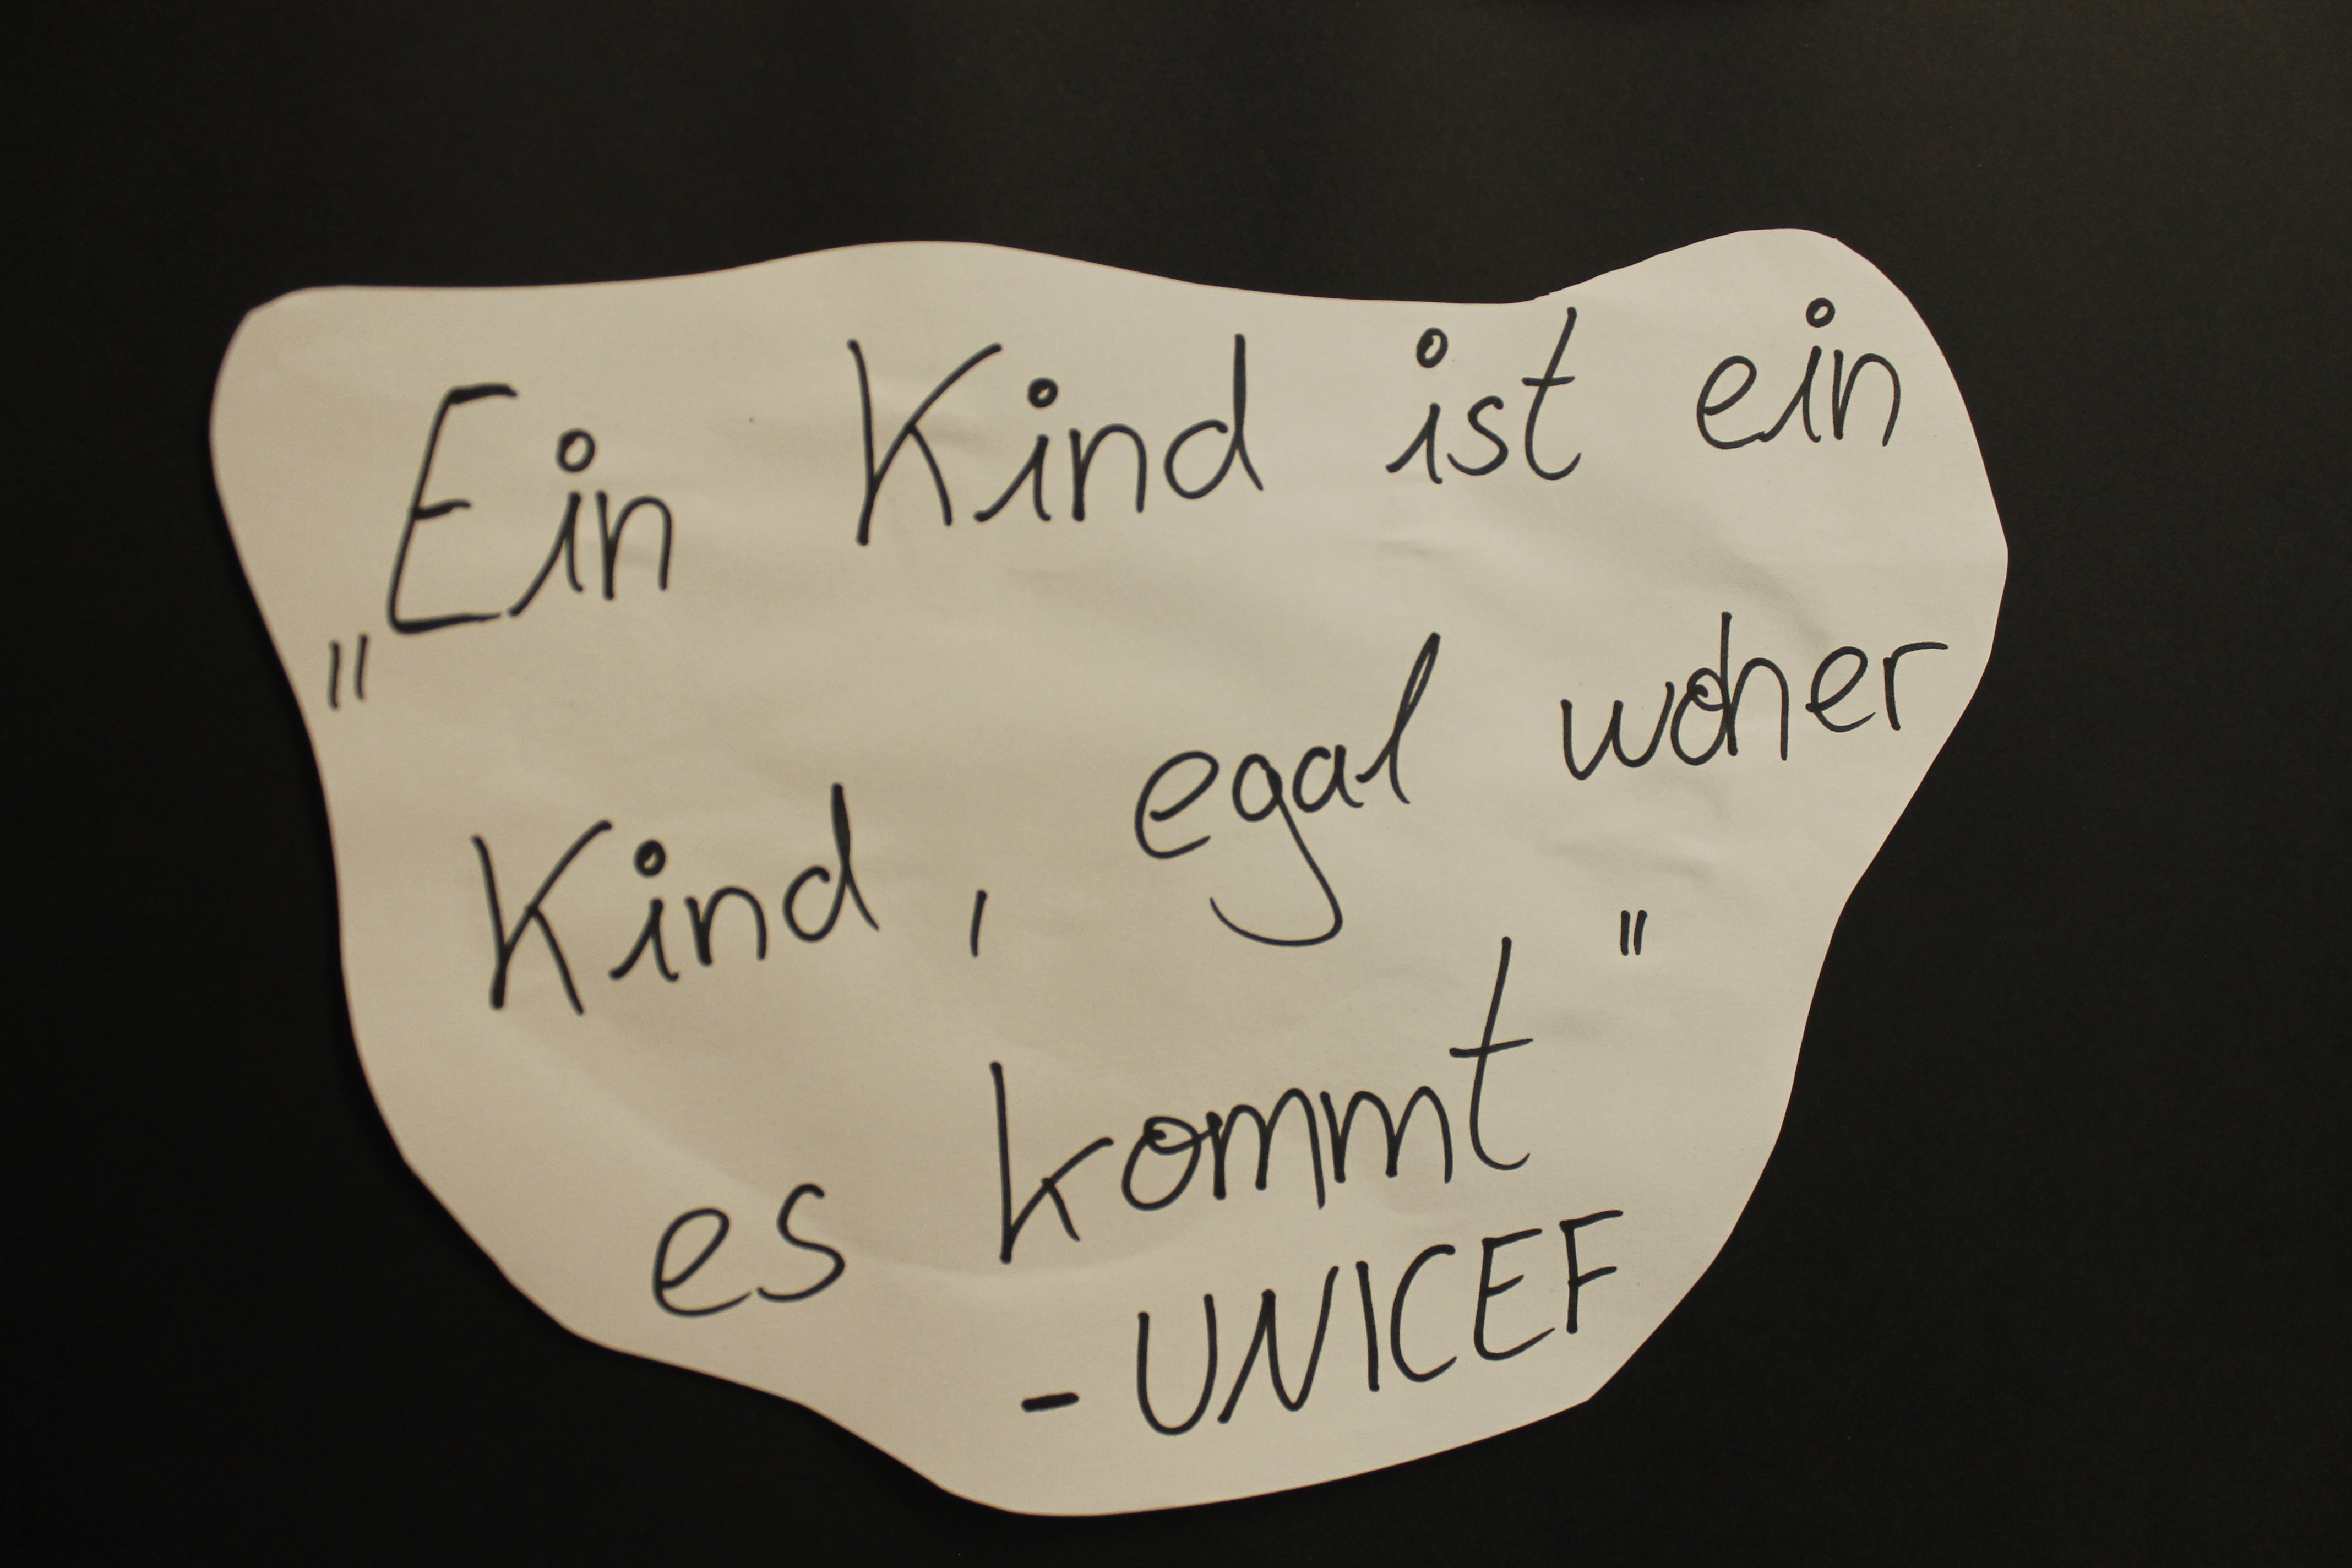 „Ein Kind ist ein
Kind, egal woher
es kommt"
- UNICEF